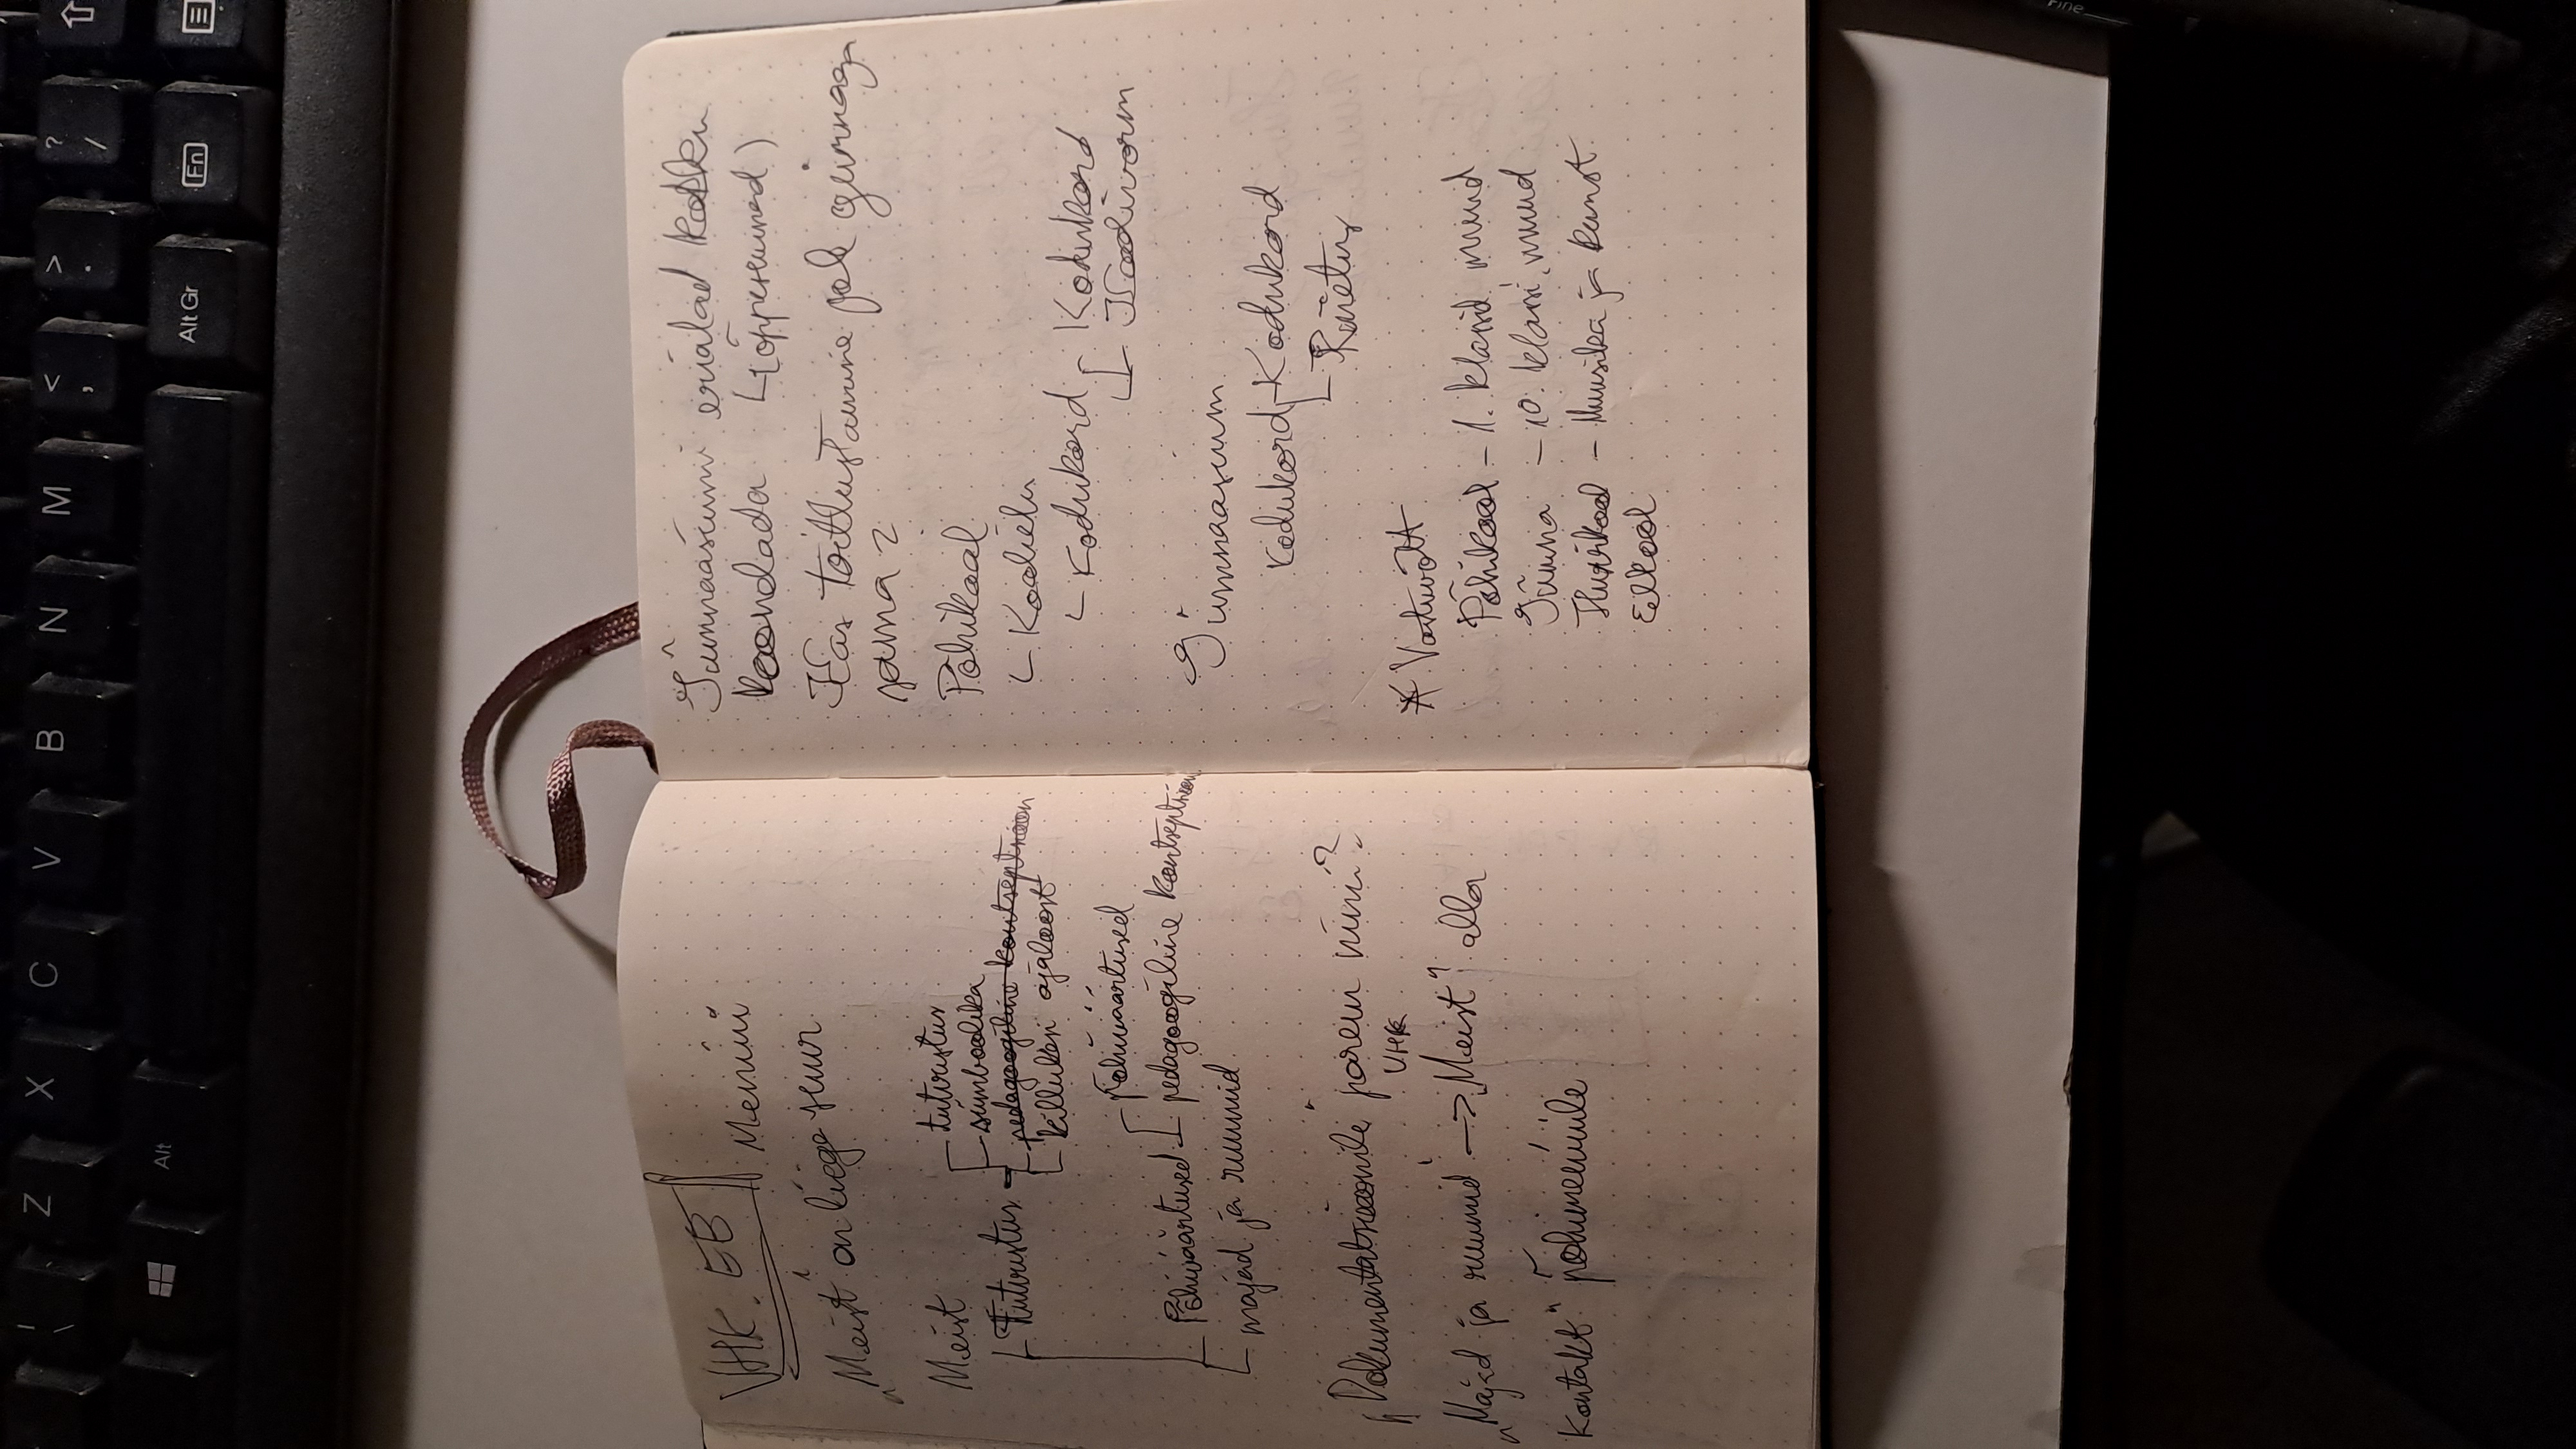 VHK.EE Menüü
"Meist" on liiga suur
Meist
Tutvustus
tutvustus
sümboolika
pedagoogiline kontseptsioon
killuksi ajaloost
Põhiväärtused
Põhiväärtused
pedagoogiline kontseptsioon
majad ja ruumid
"Dokumentatsioonile" parem nimi?
VHK
"Majad ja ruumid" -> "Meist" alla
"Kontakt" põhimenüüle
Gümnaasiumi erialad kokku
koondada (õppesuunad)
Kas toitlustamine pole gümnaga
sama?
Põhikool
Koolielu
Kodukord
Kodukord
Koolivorm
Gümnaasium
Kodukord
Kodukord
Riietus
* Vastuvõtt
Põhikool - 1. klassid, muud
Gümna - 10. klassi, muud
Huvikool - Muusika ja kunst
Eelkool
Z
X
C
V
B
N
M
<
,
>
.
?
/
Alt
Alt Gr
Fn
\
Fine